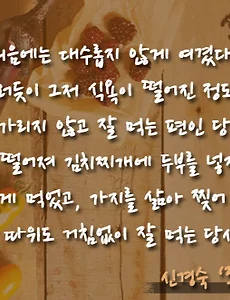 음에는 대수롭지 않게 여겼다
더듯이 그저 식욕이 떨어진 정도
가리지 않고 잘 먹는 편인 당
떨어져 김치찌개에 두부를 넣
게 먹었고, 가지를 삶아 찢어
따위도 거침없이 잘 먹는 당신
신경숙